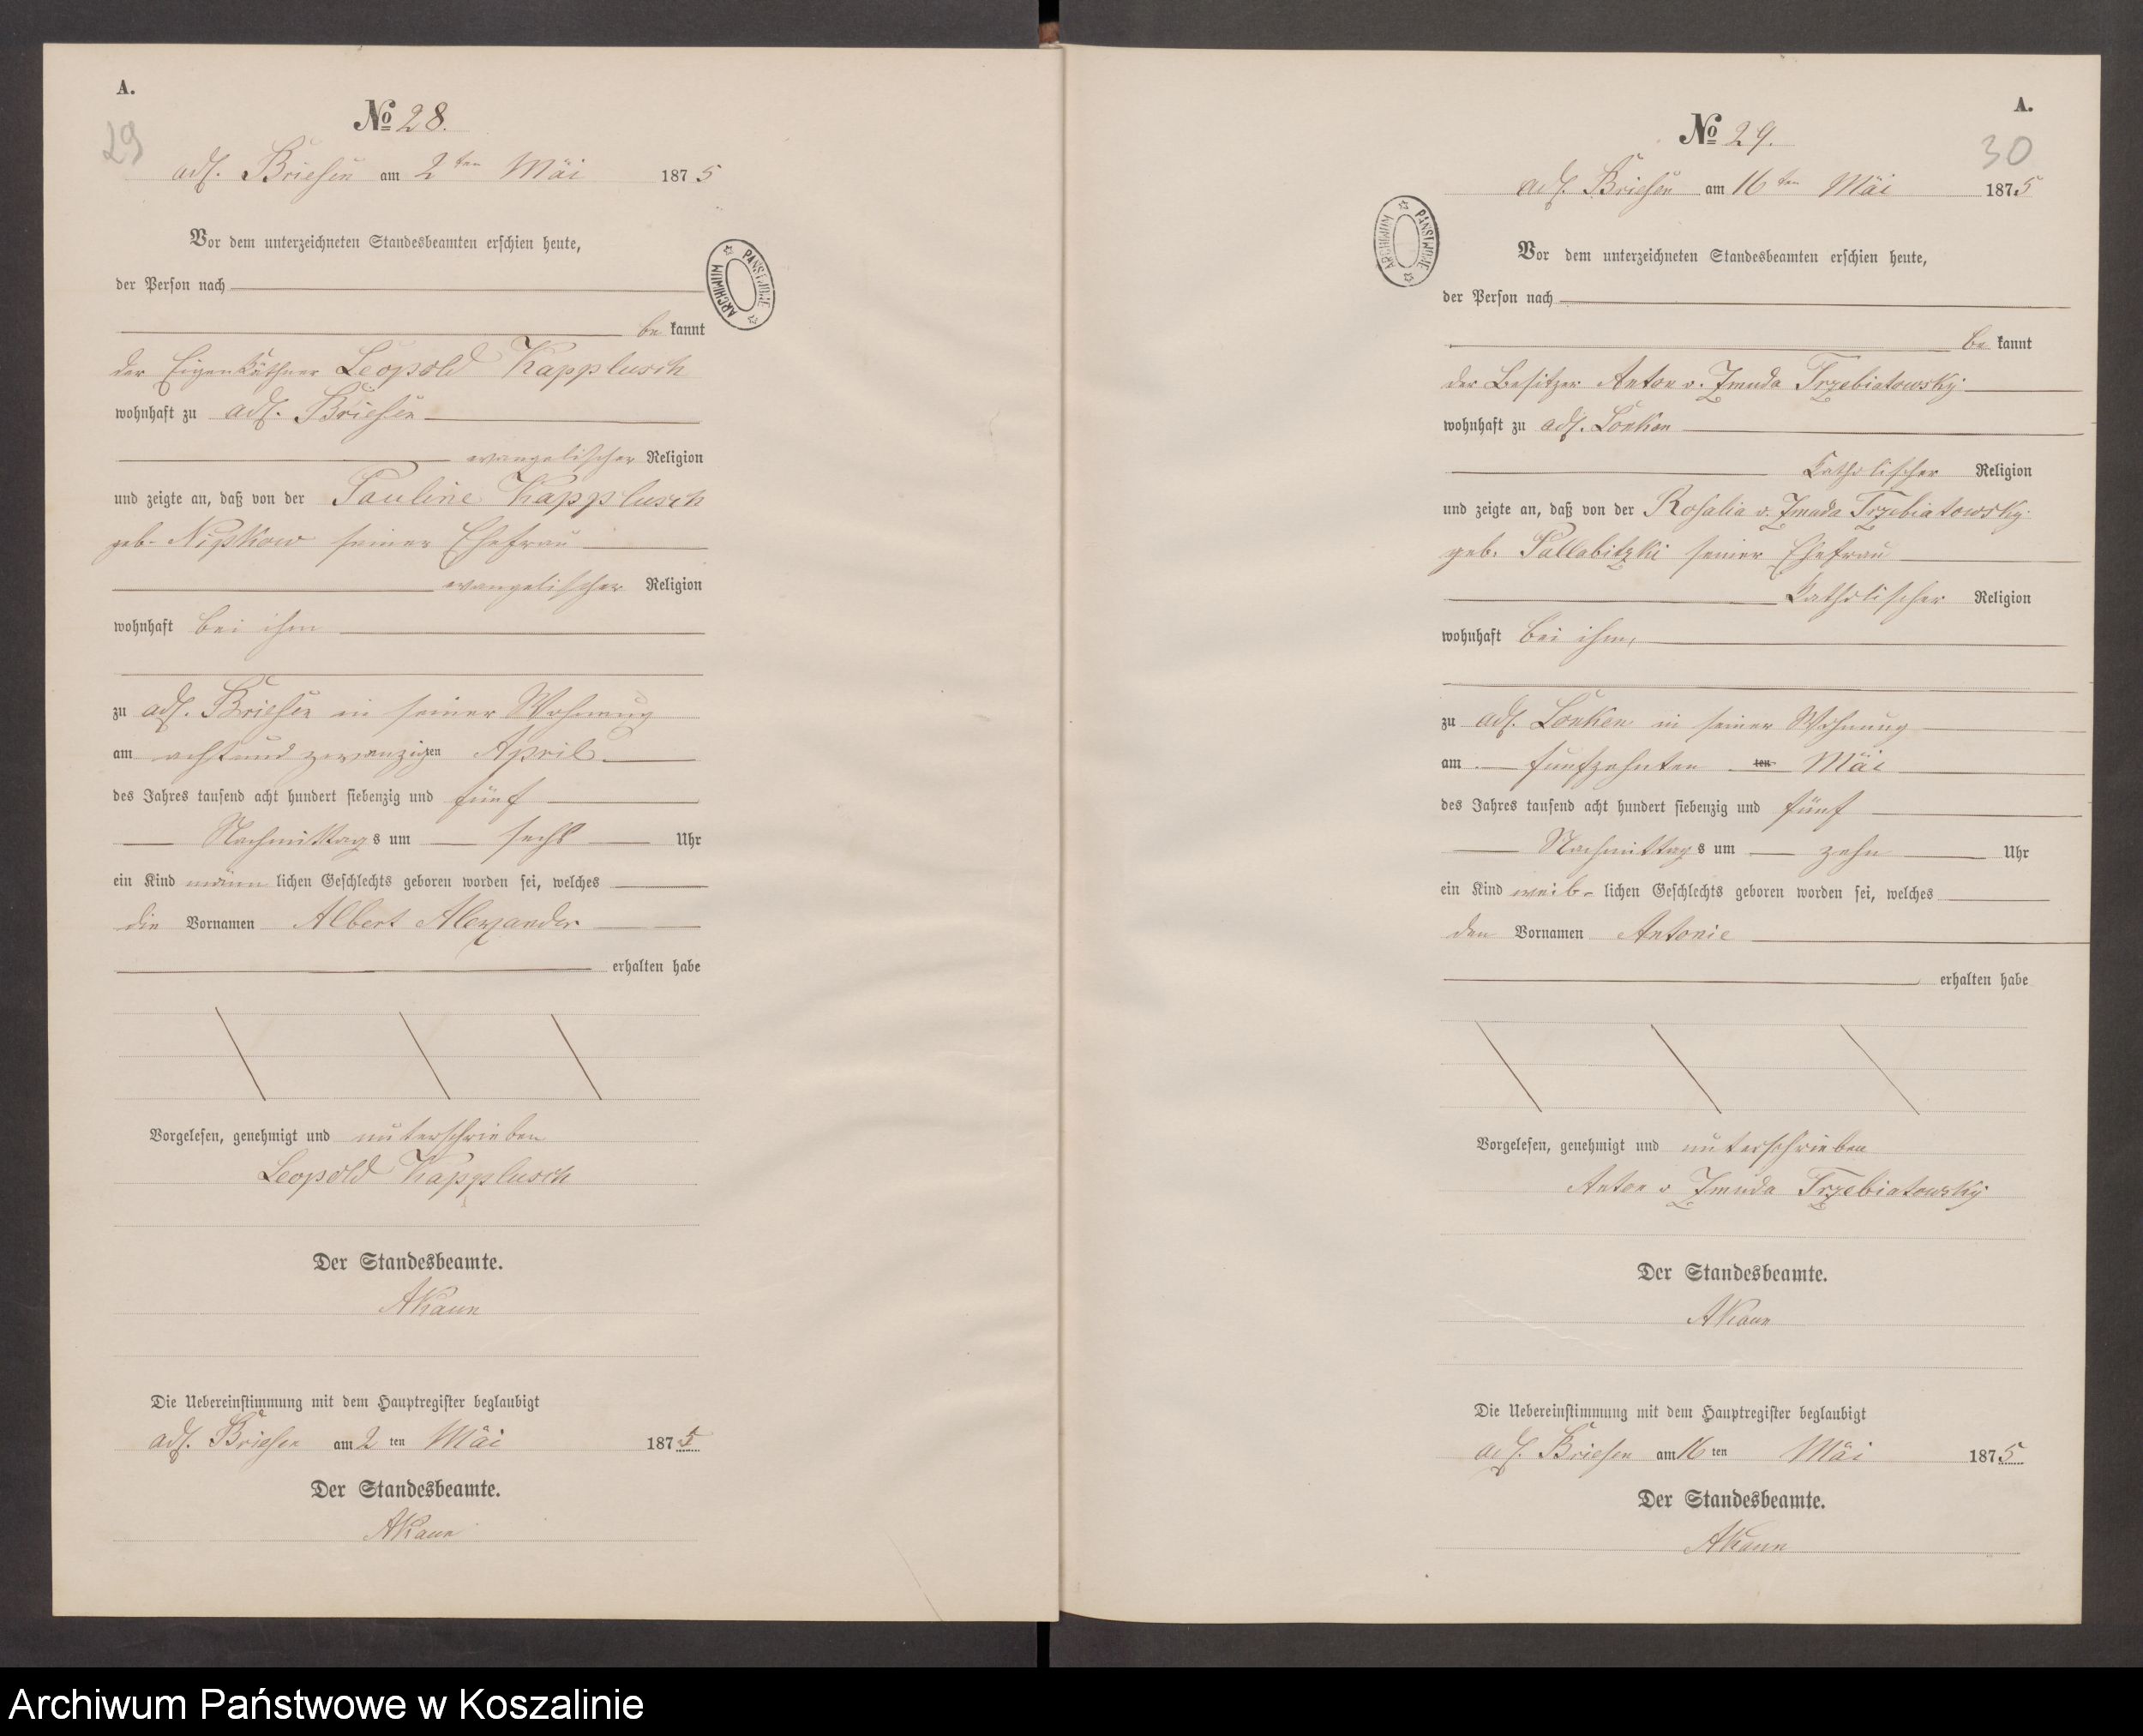 A.
29
No 28.
adl. Briesen am 2ten Mai 1875
Vor dem unterzeichneten Standesbeamten erschien heute,
der Person nach
be kannt
der Eigenkäthner Leopold Kapplusch
wohnhaft zu adl. Briesen
evangelischer Religion
und zeigte an, daß von der Pauline Kapplusch
geb. Nipkow seiner Ehefrau
evangelischer Religion
wohnhaft bei ihm
zu adl. Briesen in seiner Wohnung
am acht und zwanzigten April
des Jahres tausend acht hundert siebenzig und fünf
Nachmittags um sechs Uhr
ein Kind männlichen Geschlechts geboren worden sei, welches
die Vornamen Albert Alexander
erhalten habe
Vorgelesen, genehmigt und unterschrieben
Leopold Kapplusch
Der Standesbeamte.
AKaun
Die Uebereinstimmung mit dem Hauptregister beglaubigt
adl. Briesen am 2ten Mai 1875
Der Standesbeamte.
AKaun
ARCHIWUM PAŃSTWOWE
A.
30
No 29.
adl. Briesen am 16ten Mai 1875
ARCHIWUM PAŃSTWOWE
Vor dem unterzeichneten Standesbeamten erschien heute,
der Person nach
be kannt
der Besitzer Anton v. Zmuda Trzebiatowsky
wohnhaft zu adl. Lonken
Katholischer Religion
und zeigte an, daß von der Rosalia v. Zmuda Trzebiatowsky
geb. Pallubitzki seiner Ehefrau
Katholischer Religion
wohnhaft bei ihm,
zu adl. Lonken in seiner Wohnung
am fünfzehnten ten Mai
des Jahres tausend acht hundert siebenzig und fünf
Nachmittags um zehn Uhr
ein Kind weib- lichen Geschlechts geboren worden sei, welches
den Vornamen Antonie
erhalten habe
Vorgelesen, genehmigt und unterschrieben
Anton v Zmuda Trzebiatowsky
Der Standesbeamte.
AKaun
Die Uebereinstimmung mit dem Hauptregister beglaubigt
adl. Briesen am 16ten Mai 1875
Der Standesbeamte.
AKaun
Archiwum Państwowe w Koszalinie